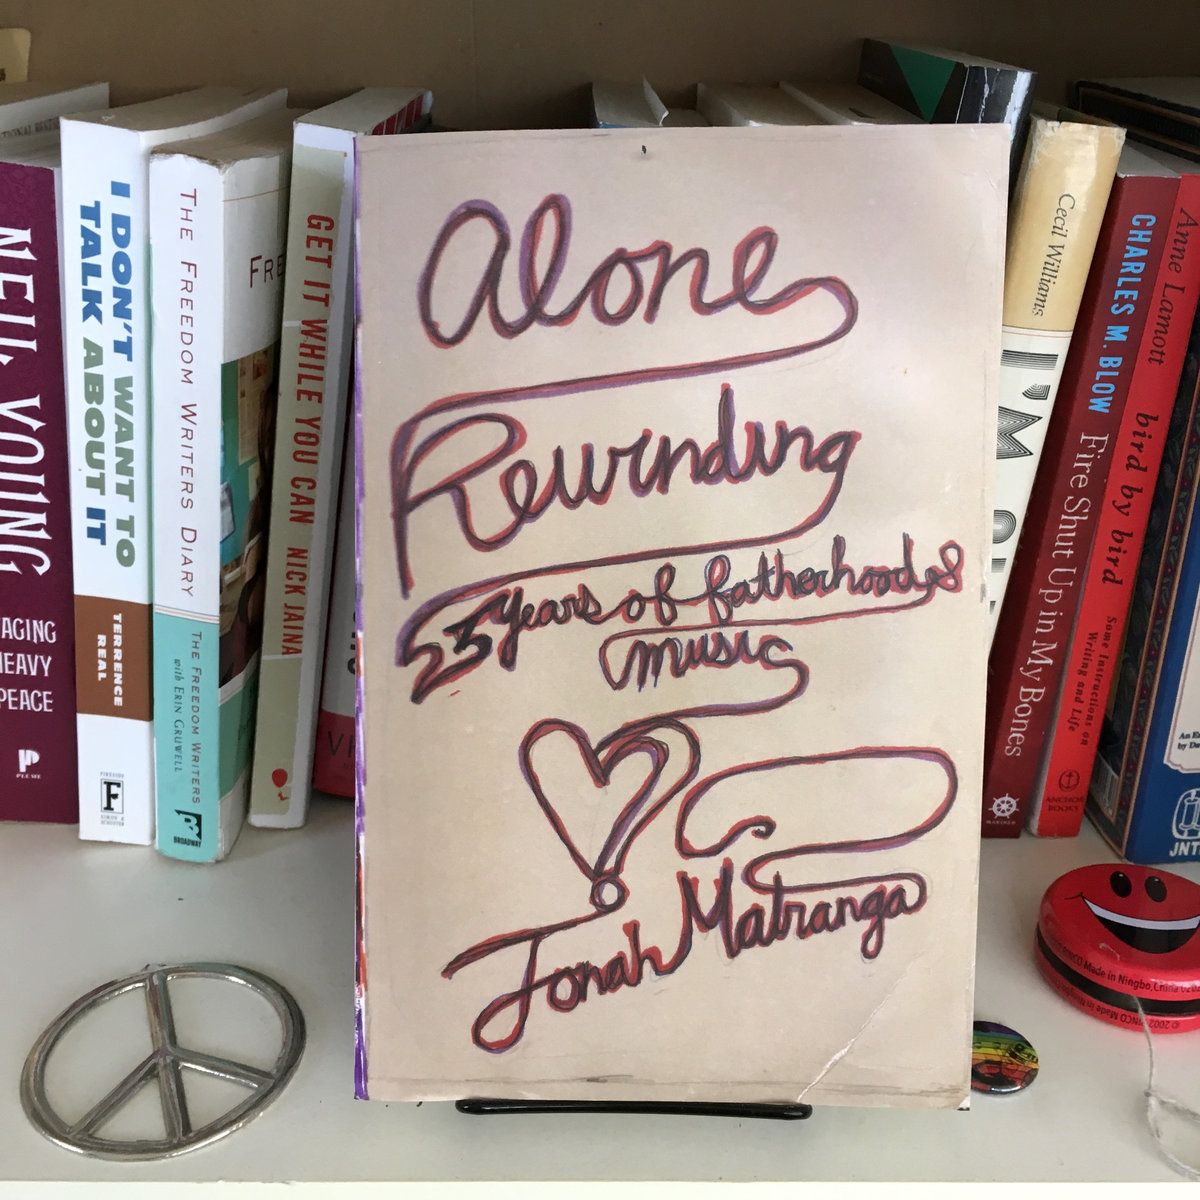 NEIL YOUNG
AGING
HEAVY
PEACE
PLUME
I DON'T WANT TO
TALK ABOUT IT
TERRENCE
REAL
FIRESIDE
F
SIMON & SCHUSTER
THE FREEDOM WRITERS DIARY
THE FREEDOM WRITERS
with ERIN GRUWELL
BROADWAY
FRE
GET IT WHILE YOU CAN NICK JAINA
Alone
Rewinding
25 years of fatherhood &
music
Jonah Matranga
Cecil Williams
I'M
CHARLES M. BLOW
Fire Shut Up in My Bones
Anne Lamott
bird by bird
Some Instructions on
Writing and Life
ANCHOR
BOOKS
JNT
Made in Ningbo, China